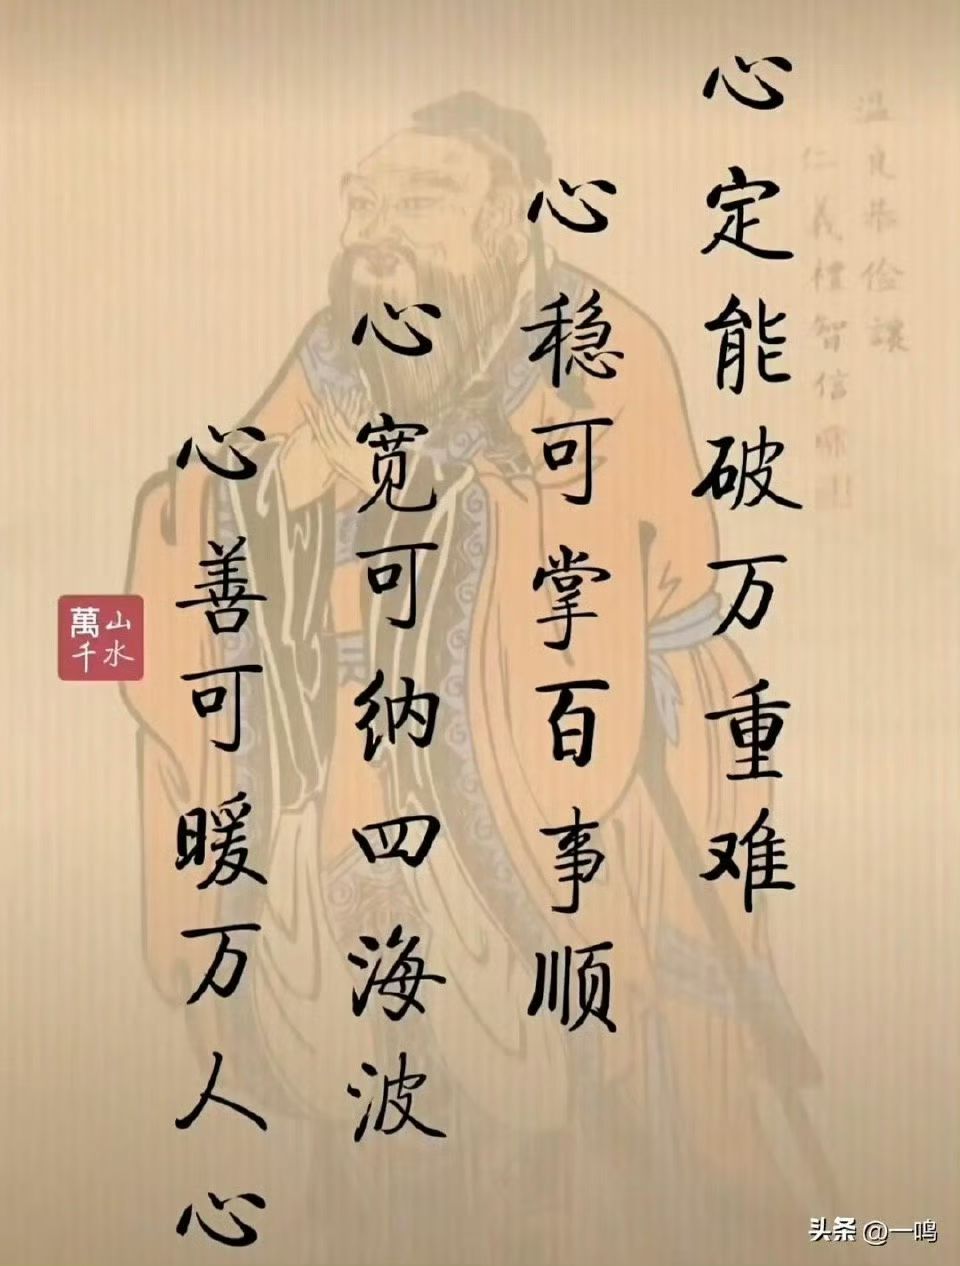 心定能破万重难
心稳可掌百事顺
心宽可纳四海波
心善可暖万人心
温良恭俭让
仁義禮智信
山水
萬千
头条 @一鸣